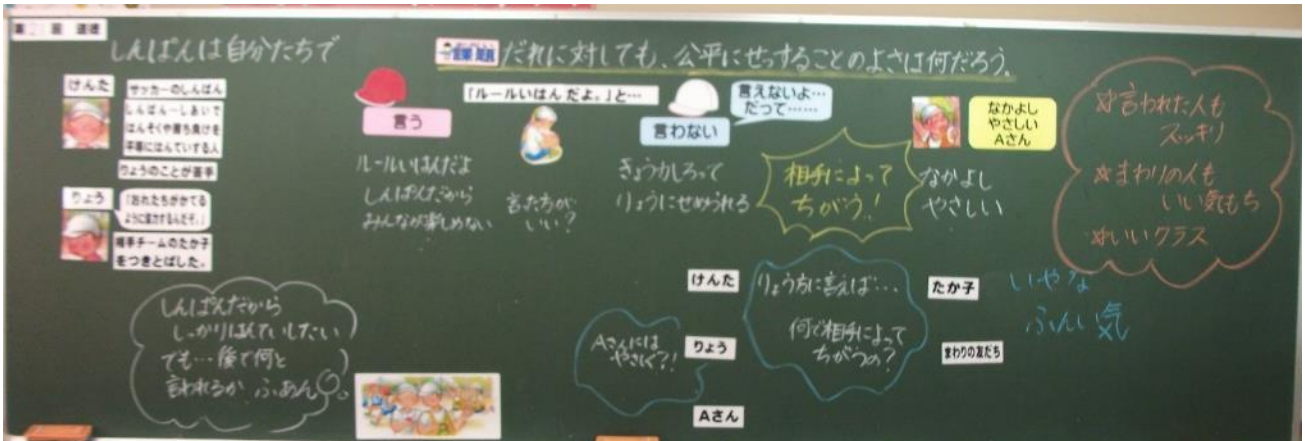 第 回 道徳
しんぱんは自分たちで
学習課題
だれに対しても、公平にせっすることのよさは何だろう。
けんた
サッカーのしんぱん
しんぱん…しあいで
はんそくや勝ち負けを
平等にはんていする人
りょうのことが苦手
りょう
「おれたちがかてる
ように協力するんだぞ。」
相手チームのたか子
をつきとばした。
しんぱんだから
しっかりはんていしたい
でも…後で何と
言われるか ふあん
言う
ルールいはんだよ
しんぱんだから
みんなが楽しめない
「ルールいはんだよ。」と…
言った方が
いい?
言わない
言えないよ…
だって……
きょうかしろって
りょうにせめられる
相手によって
ちがう!
なかよし
やさしい
Aさん
なかよし
やさしい
けんた
りょう
Aさん
Aさんには
やさしく?!
りょう方に言えば…
何で相手によって
ちがうの?
たか子
まわりの友だち
いやな
ふんい気
☆言われた人も
スッキリ
☆まわりの人も
いい気もち
☆いいクラス